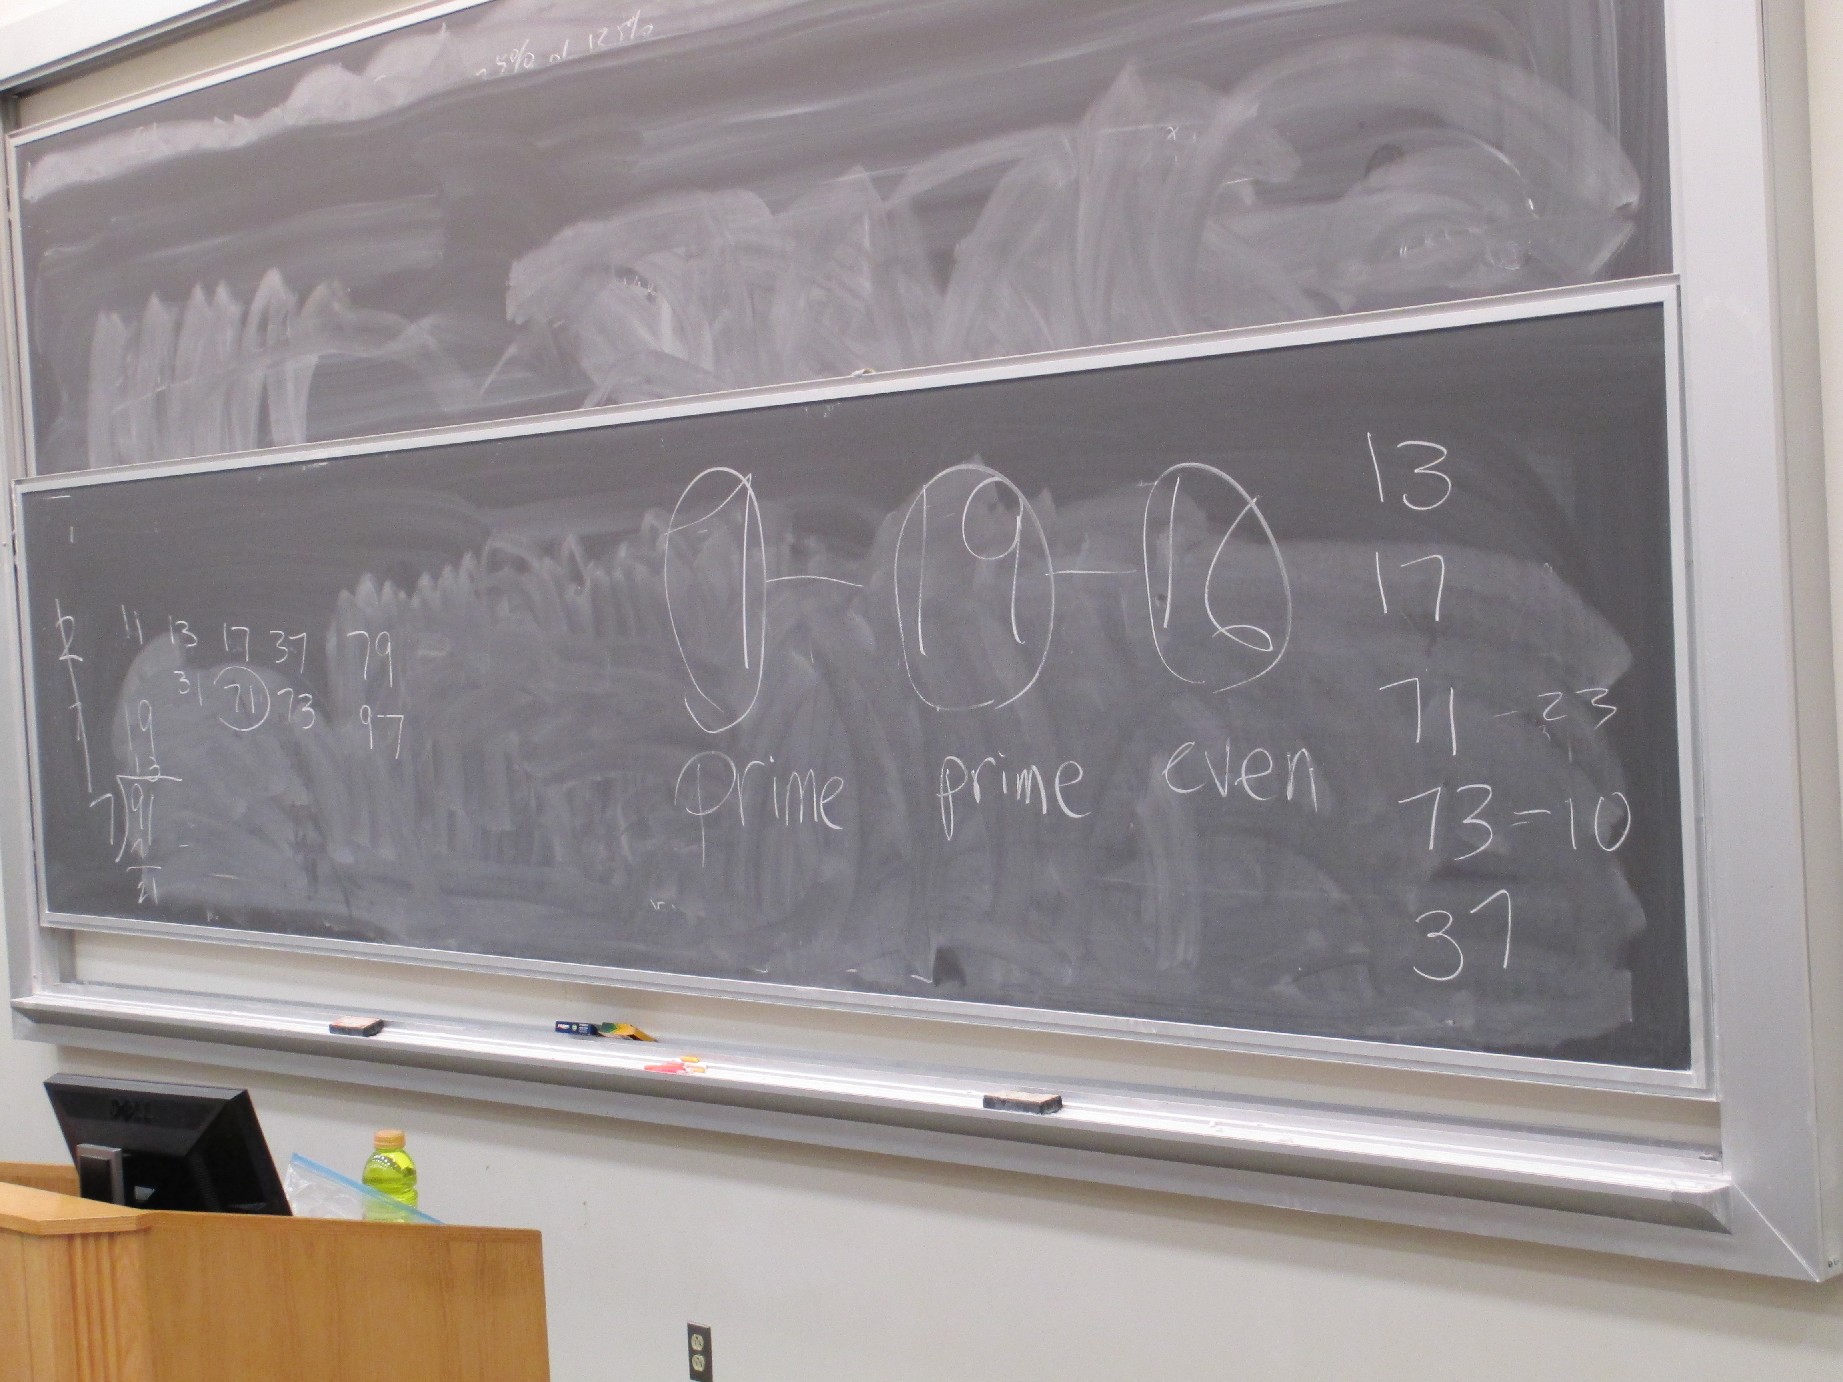 25% of 125%
1
12
11 13 17 37 79
31 71 73 97
19
13
7 91
21
9 - 19 - 16
prime prime even
13
17
71 - 23
73 - 10
37
DELL